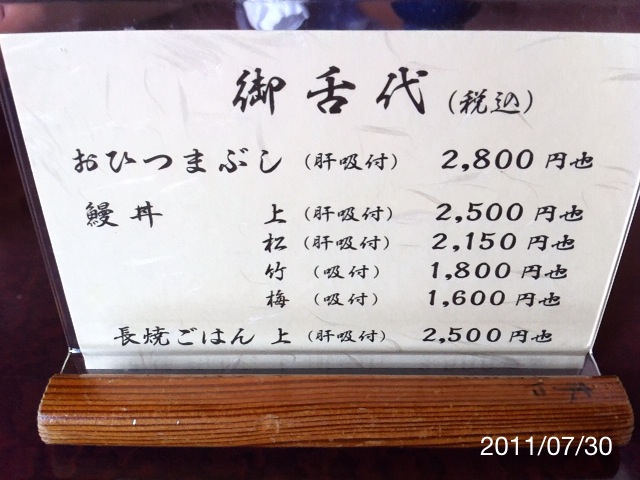 御舌代（税込）
おひつまぶし（肝吸付） 2,800 円也
鰻丼 上（肝吸付） 2,500 円也
松（肝吸付） 2,150 円也
竹（吸付） 1,800 円也
梅（吸付） 1,600 円也
長焼ごはん 上（肝吸付） 2,500 円也
2011/07/30